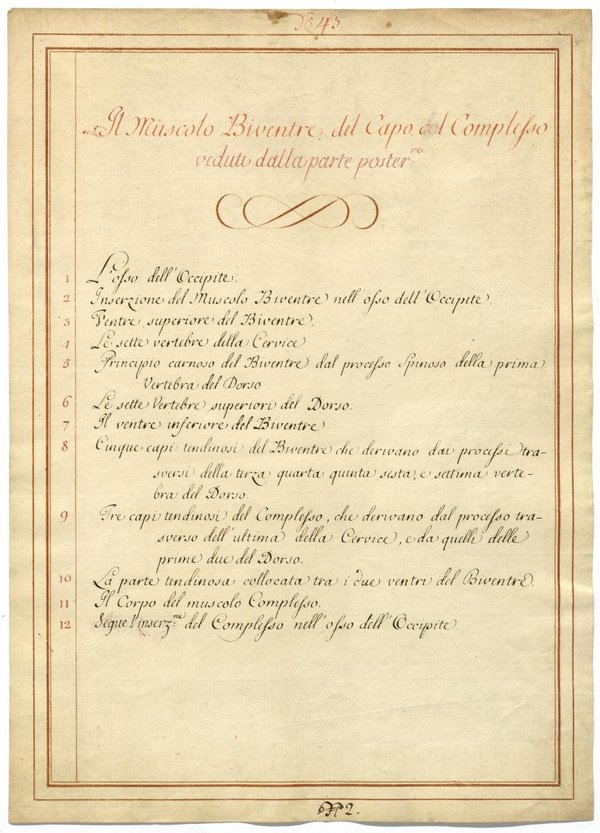 N. 43
Il Muscolo Biventre del Capo, col Complesso
veduti dalla parte poster.re
1 L'osso dell'Occipite.
2 Inserzione del Muscolo Biventre nell'osso dell'Occipite.
3 Ventre superiore del Biventre.
4 Le sette vertebre della Cervice
5 Principio carnoso del Biventre dal processo Spinoso della prima
Vertebra del Dorso
6 Le sette Vertebre superiori del Dorso.
7 Il ventre inferiore del Biventre
8 Cinque capi tendinosi del Biventre che derivano dai processi tra-
sversi della terza quarta quinta sesta, e settima verte-
bra del Dorso.
9 Tre capi tendinosi del Complesso, che derivano dal processo tra-
sverso dell'ultima della Cervice, e da quelli delle
prime due del Dorso.
10 La parte tendinosa collocata tra i due ventri del Biventre.
11 Il Corpo del muscolo Complesso.
12 Segue l'inserz.ne del Complesso nell'osso dell'Occipite.
2.